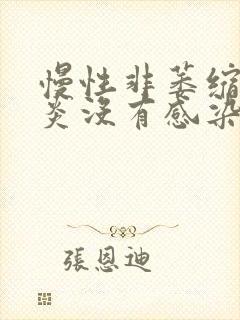 慢性非萎缩
炎没有感染
張恩迪